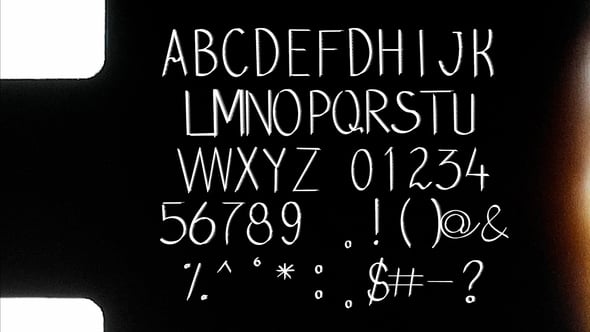 ABCDEFDHIJK
LMNOPQRSTU
VWXYZ 01234
56789 .!()@&
%^‘*: .$#-?